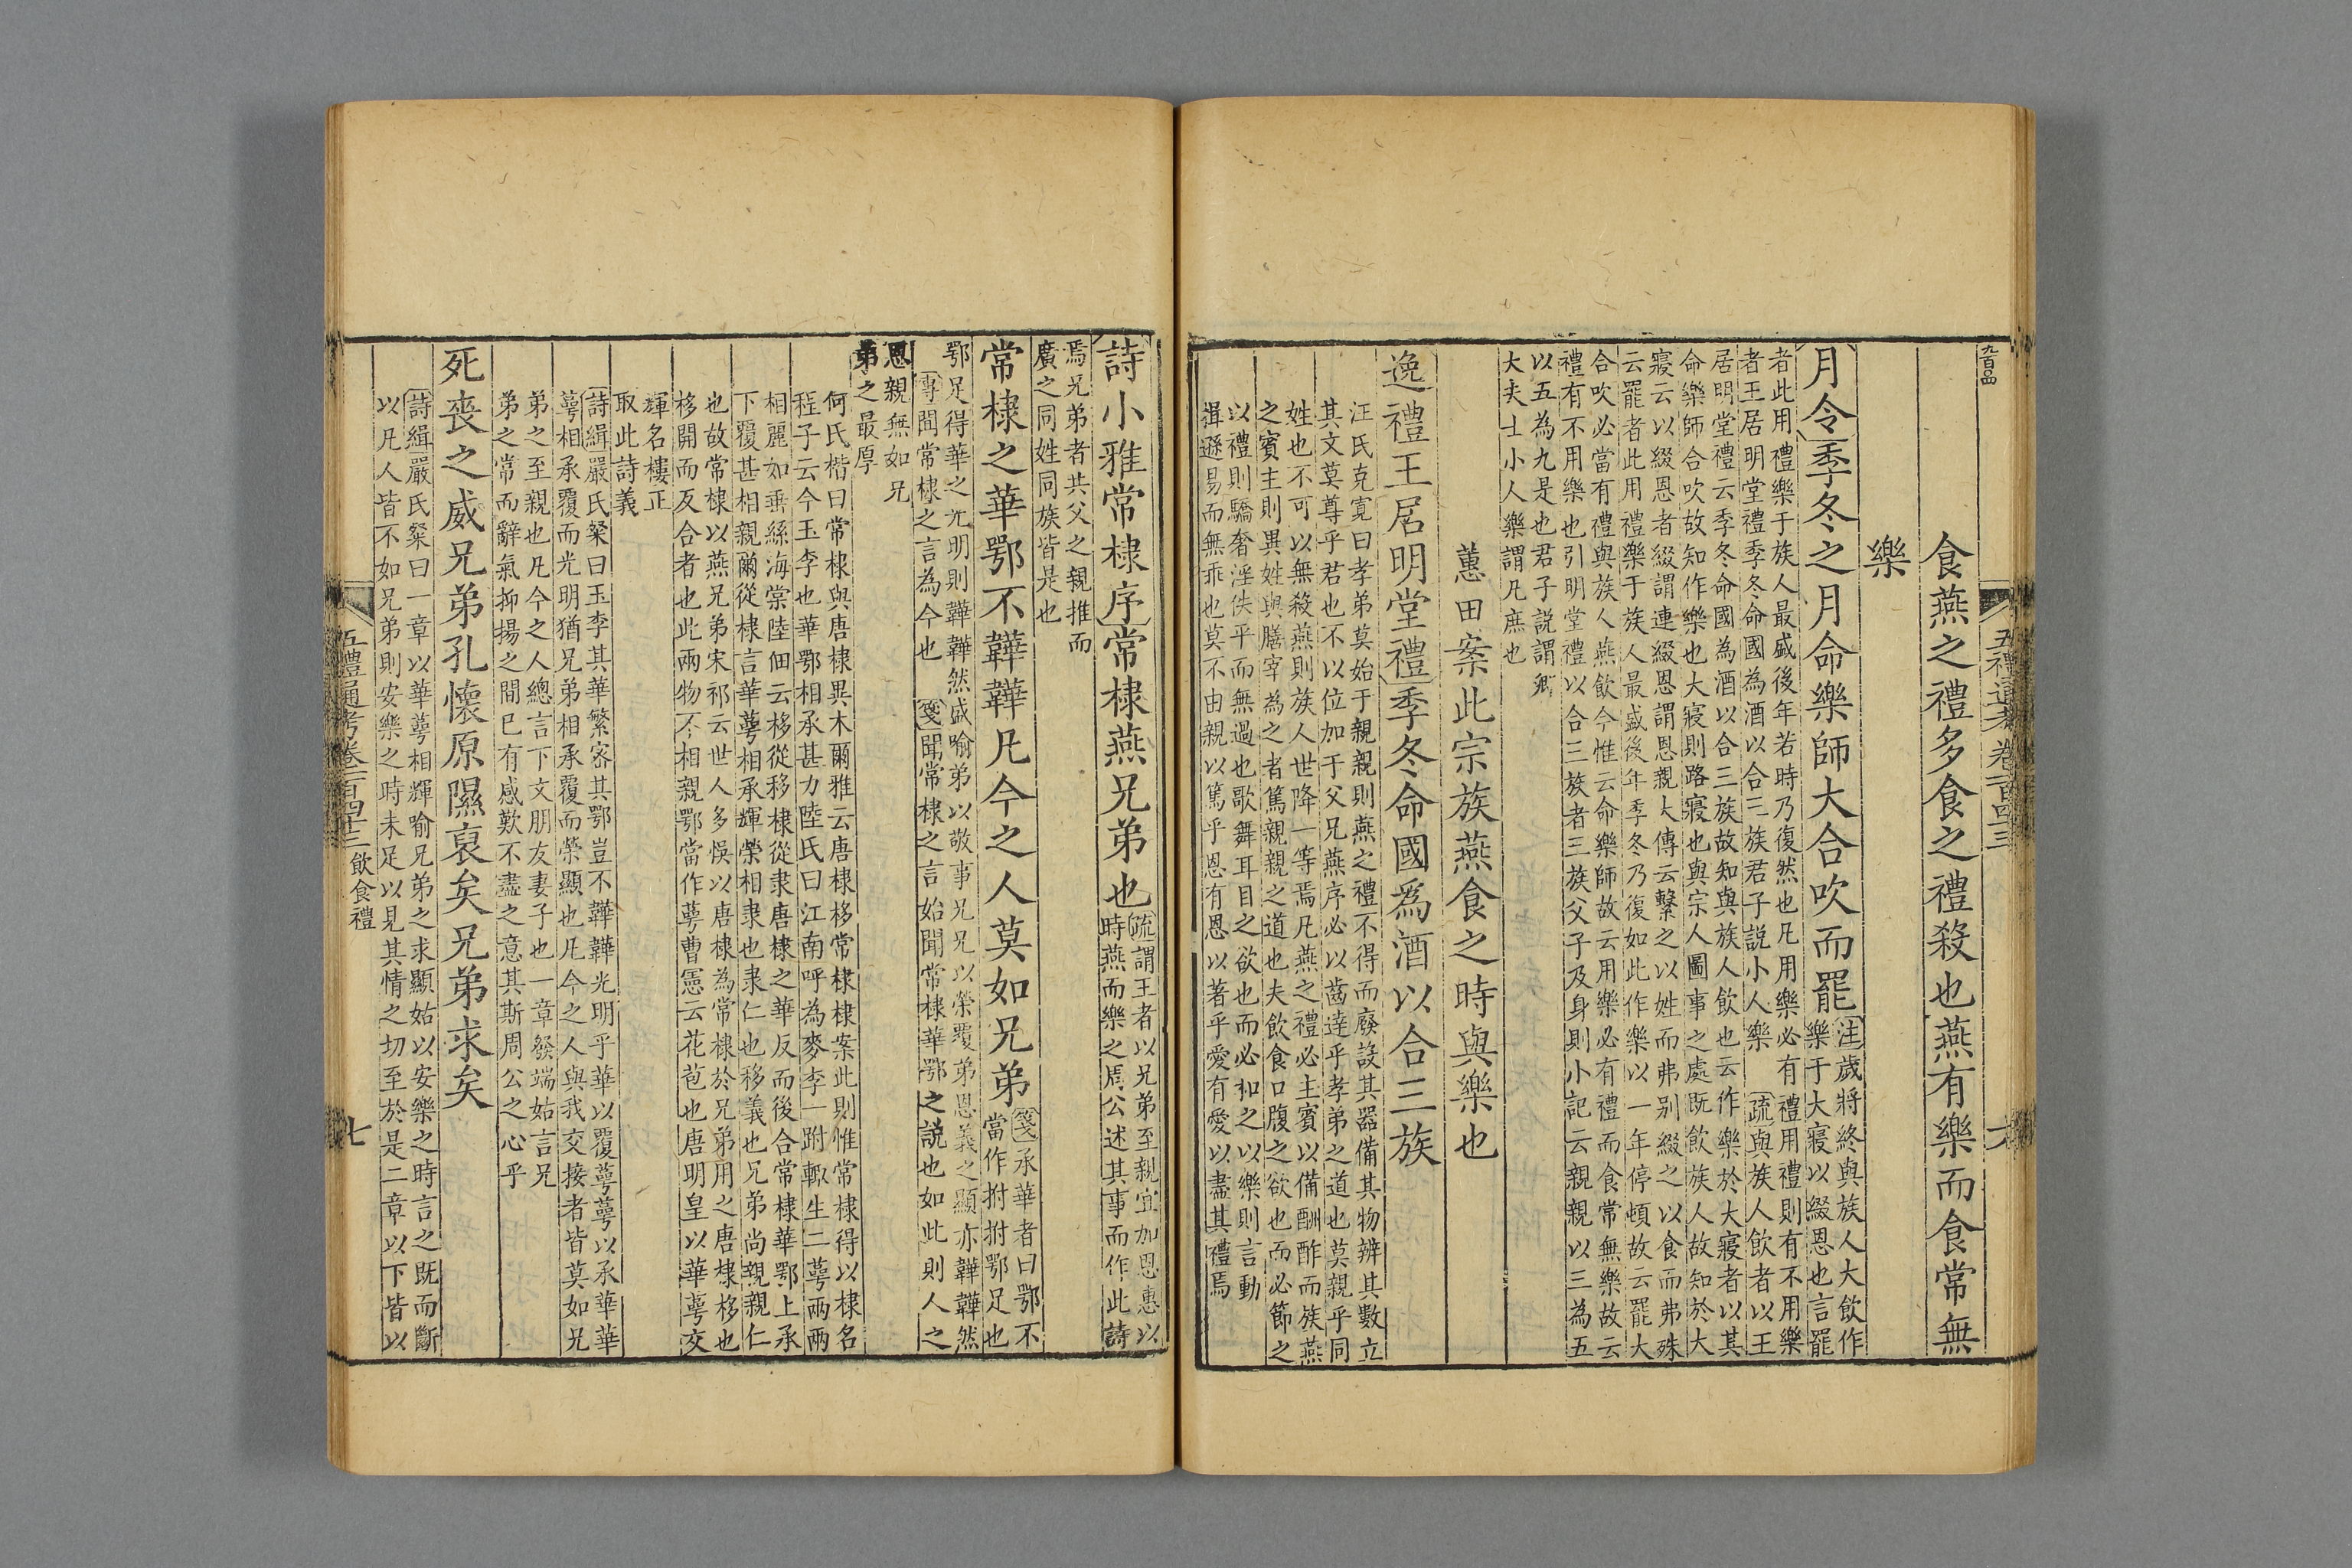 九百四
五禮通考卷二百四十三
六
食燕之禮多食之禮殺也燕有樂而食常無
樂
月令季冬之月命樂師大合吹而罷
注歲將終與族人大飲作
樂于大寢以綴恩也言罷
者此用禮樂于族人最盛後年若時乃復然也凡用樂必有禮用禮則有不用樂
者王居明堂禮季冬命國為酒以合三族君子説小人樂 疏與族人飲者以王
居明堂禮云季冬命國為酒以合三族故知與族人飲也云作樂於大寢者以其
命樂師合吹故知作樂也大寢則路寢也與宗人圖事之處既飲族人故知於大
寢云以綴恩者綴謂連綴恩謂恩親大傳云繫之以姓而弗别綴之以食而弗殊
云罷者此用禮樂于族人最盛後年季冬乃復如此作樂以一年停頓故云罷大
合吹必當有禮與族人燕飲今惟云命樂師故云用樂必有禮而食常無樂故云
禮有不用樂也引明堂禮以合三族者三族父子及身則小記云親親以三為五
以五為九是也君子説謂卿
大夫士小人樂謂凡庶也
蕙田案此宗族燕食之時與樂也
逸禮王居明堂禮季冬命國爲酒以合三族
汪氏克寛曰孝弟莫始于親親則燕之禮不得而廢談其器備其物辨其數立
其文莫尊乎君也不以位加于父兄燕序必以齒逹乎孝弟之道也莫親乎同
姓也不可以無殺燕則族人世降一等焉凡燕之禮必主賓以備酬酢而族燕
之賓主則異姓與膳宰為之者篤親親之道也夫飲食口腹之欲也而必節之
以禮則驕奢淫佚平而無過也歌舞耳目之欲也而必和之以樂則言動
揖遜易而無乖也莫不由親以篤乎恩有恩以著乎愛有愛以盡其禮焉
詩小雅常棣序常棣燕兄弟也
疏謂王者以兄弟至親宜加恩惠以
時燕而樂之周公述其事而作此詩
焉兄弟者共父之親推而
廣之同姓同族皆是也
常棣之華鄂不韡韡凡今之人莫如兄弟
箋承華者曰鄂不
當作拊拊鄂足也
鄂足得華之光明則韡韡然盛喻弟以敬事兄兄以榮覆弟恩義之顯亦韡韡然
傳聞常棣之言為今也 箋聞常棣之言始聞常棣華鄂之説也如此則人之
恩親無如兄
弟之最厚
何氏楷曰常棣與唐棣異木爾雅云唐棣栘常棣棣案此則惟常棣得以棣名
程子云今玉李也華鄂相承甚力陸氏曰江南呼為麥李一跗輙生二萼兩兩
相麗如垂絲海棠陸佃云栘從移棣從隶唐棣之華反而後合常棣華鄂上承
下覆甚相親爾從棣言華萼相承輝榮相隶也隶仁也移義也兄弟尚親親仁
也故常棣以燕兄弟宋祁云世人多悞以唐棣為常棣於兄弟用之唐棣栘也
移開而反合者也此兩物不相親鄂當作萼曹憲云花苞也唐明皇以華萼交
輝名樓正
取此詩義
詩緝嚴氏粲曰玉李其華繁密其鄂豈不韡韡光明乎華以覆萼萼以承華華
萼相承覆而光明猶兄弟相承覆而榮顯也凡今之人與我交接者皆莫如兄
弟之至親也凡今之人總言下文朋友妻子也一章發端姑言兄
弟之常而辭氣抑揚之間已有感歎不盡之意其斯周公之心乎
死喪之威兄弟孔懷原隰裒矣兄弟求矣
詩緝嚴氏粲曰一章以華萼相輝喻兄弟之求顯姑以安樂之時言之既而斷
以凡人皆不如兄弟則安樂之時未足以見其情之切至於是二章以下皆以
五禮通考卷二百四十三 飲食禮
七